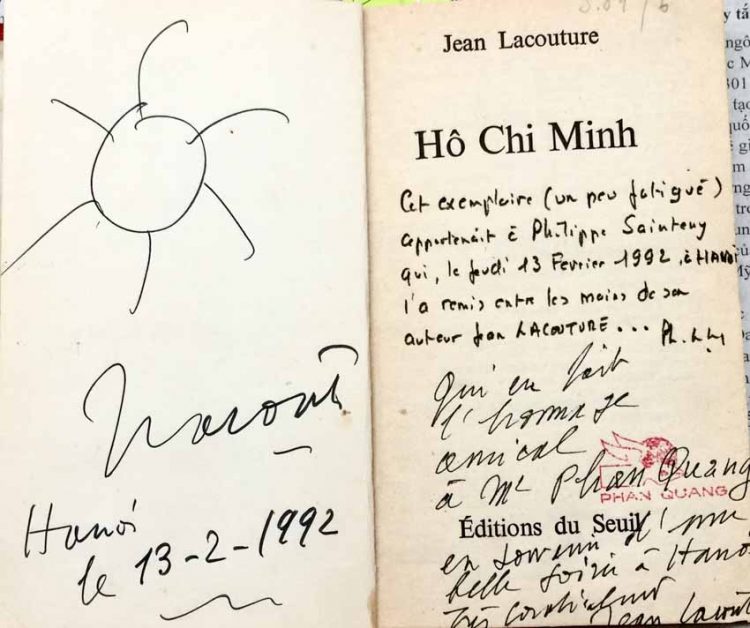 Lacouture
Hanoi
le 13-2-1992
Jean Lacouture
Hô Chi Minh
Cet exemplaire (un peu fatigué)
appartenait à Philippe Sainteny
qui, le jeudi 13 Fevrier 1992, à HANOI
l'a remis entre les mains de son
auteur Jean LACOUTURE...
Qui en fait
l'hommage
amical
à Mr Phan Quang
PHAN QUANG
Éditions du Seuil
en souvenir d'une
belle soirée à Hanoi
Très cordialement
Jean Lacouture